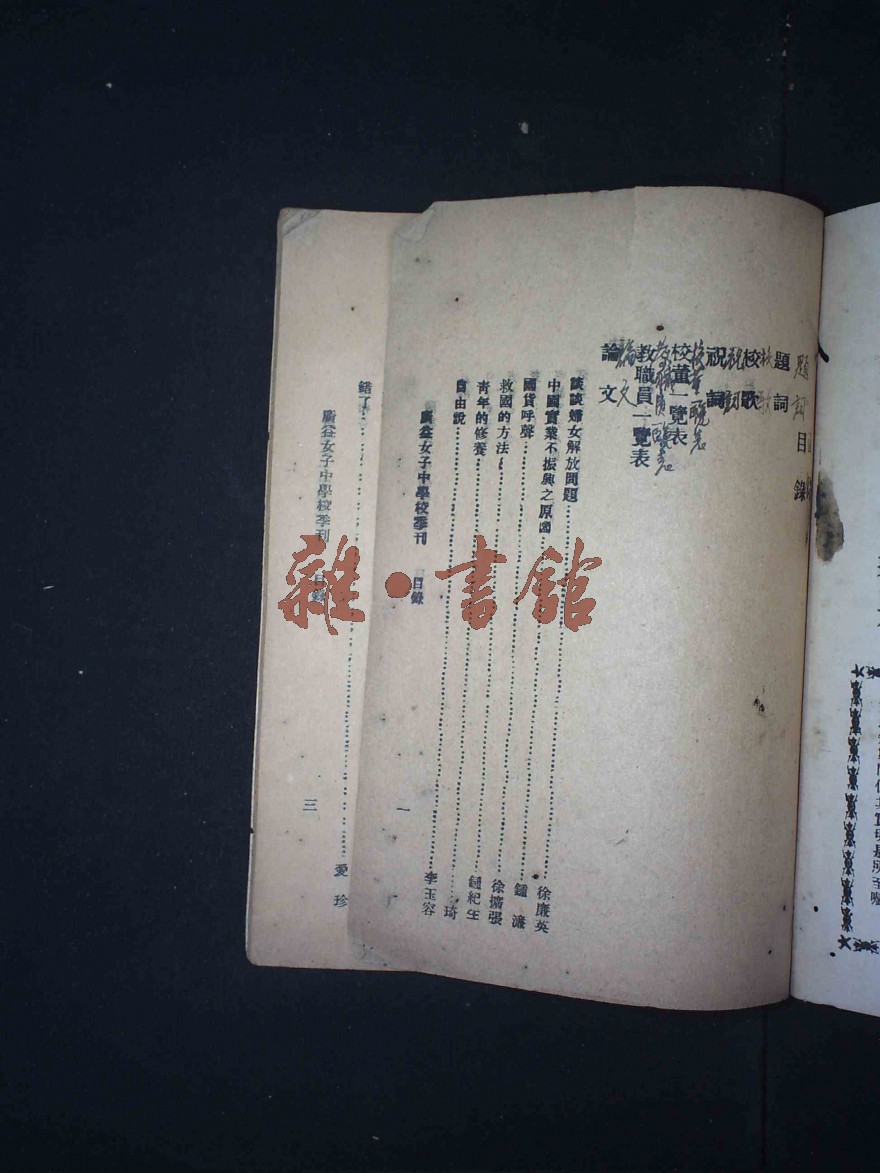 目錄
題詞
題詞
校歌
校歌
祝詞
祝詞
校董一覽表
校董一覽表
教職員一覽表
教職員一覽表
論文
論文
談談婦女解放問題……徐廉英
中國實業不振興之原因……鍾濂
國貨呼聲……徐擴張
救國的方法……鍾紀生
青年的修養……琦
自由說……李玉容
廣益女子中學校季刊 目錄 一
錯了……愛珍
廣益女子中學校季刊 目錄 三
雜·書館